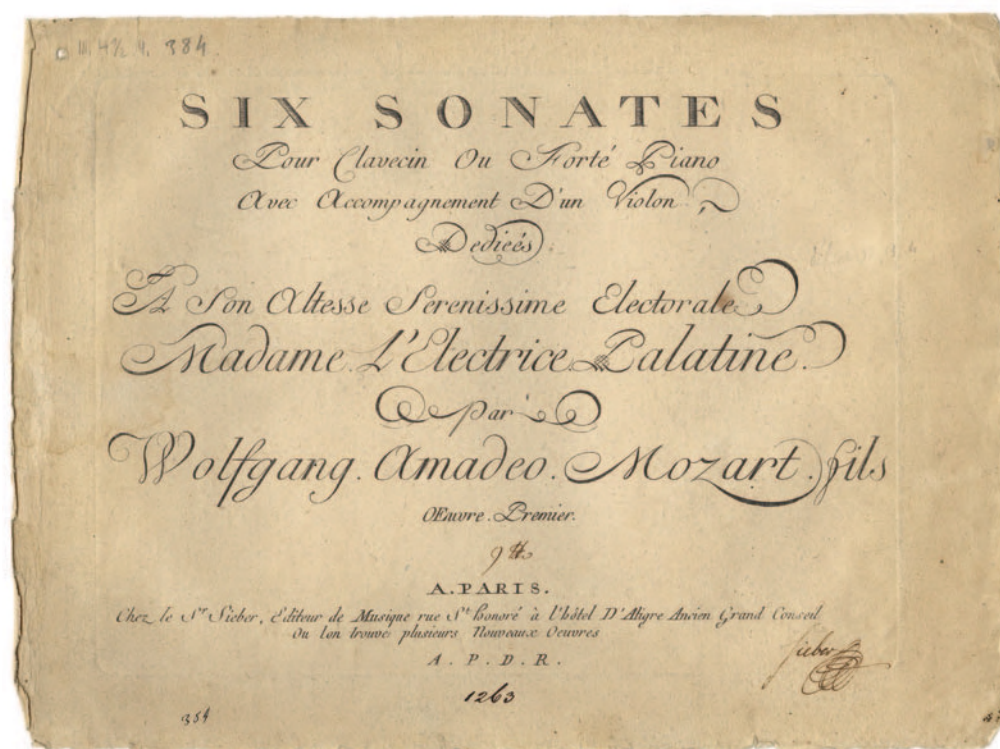 III 4½ 4. 384.
SIX SONATES
Pour Clavecin Ou Forté Piano
Avec Accompagnement D'un Violon,
Dediées
A Son Altesse Serenissime Electorale
Madame L'Electrice Palatine.
Par
Wolfgang. Amadeo. Mozart. fils
Œuvre. Premier.
9 ₶
A. PARIS.
Chez le Sr Sieber, Editeur de Musique rue St honoré à l'hôtel D'Aligre Ancien Grand Conseil
Ou lon trouve plusieurs Nouveaux Oeuvres
A. P. D. R.
Sieber
1263
354